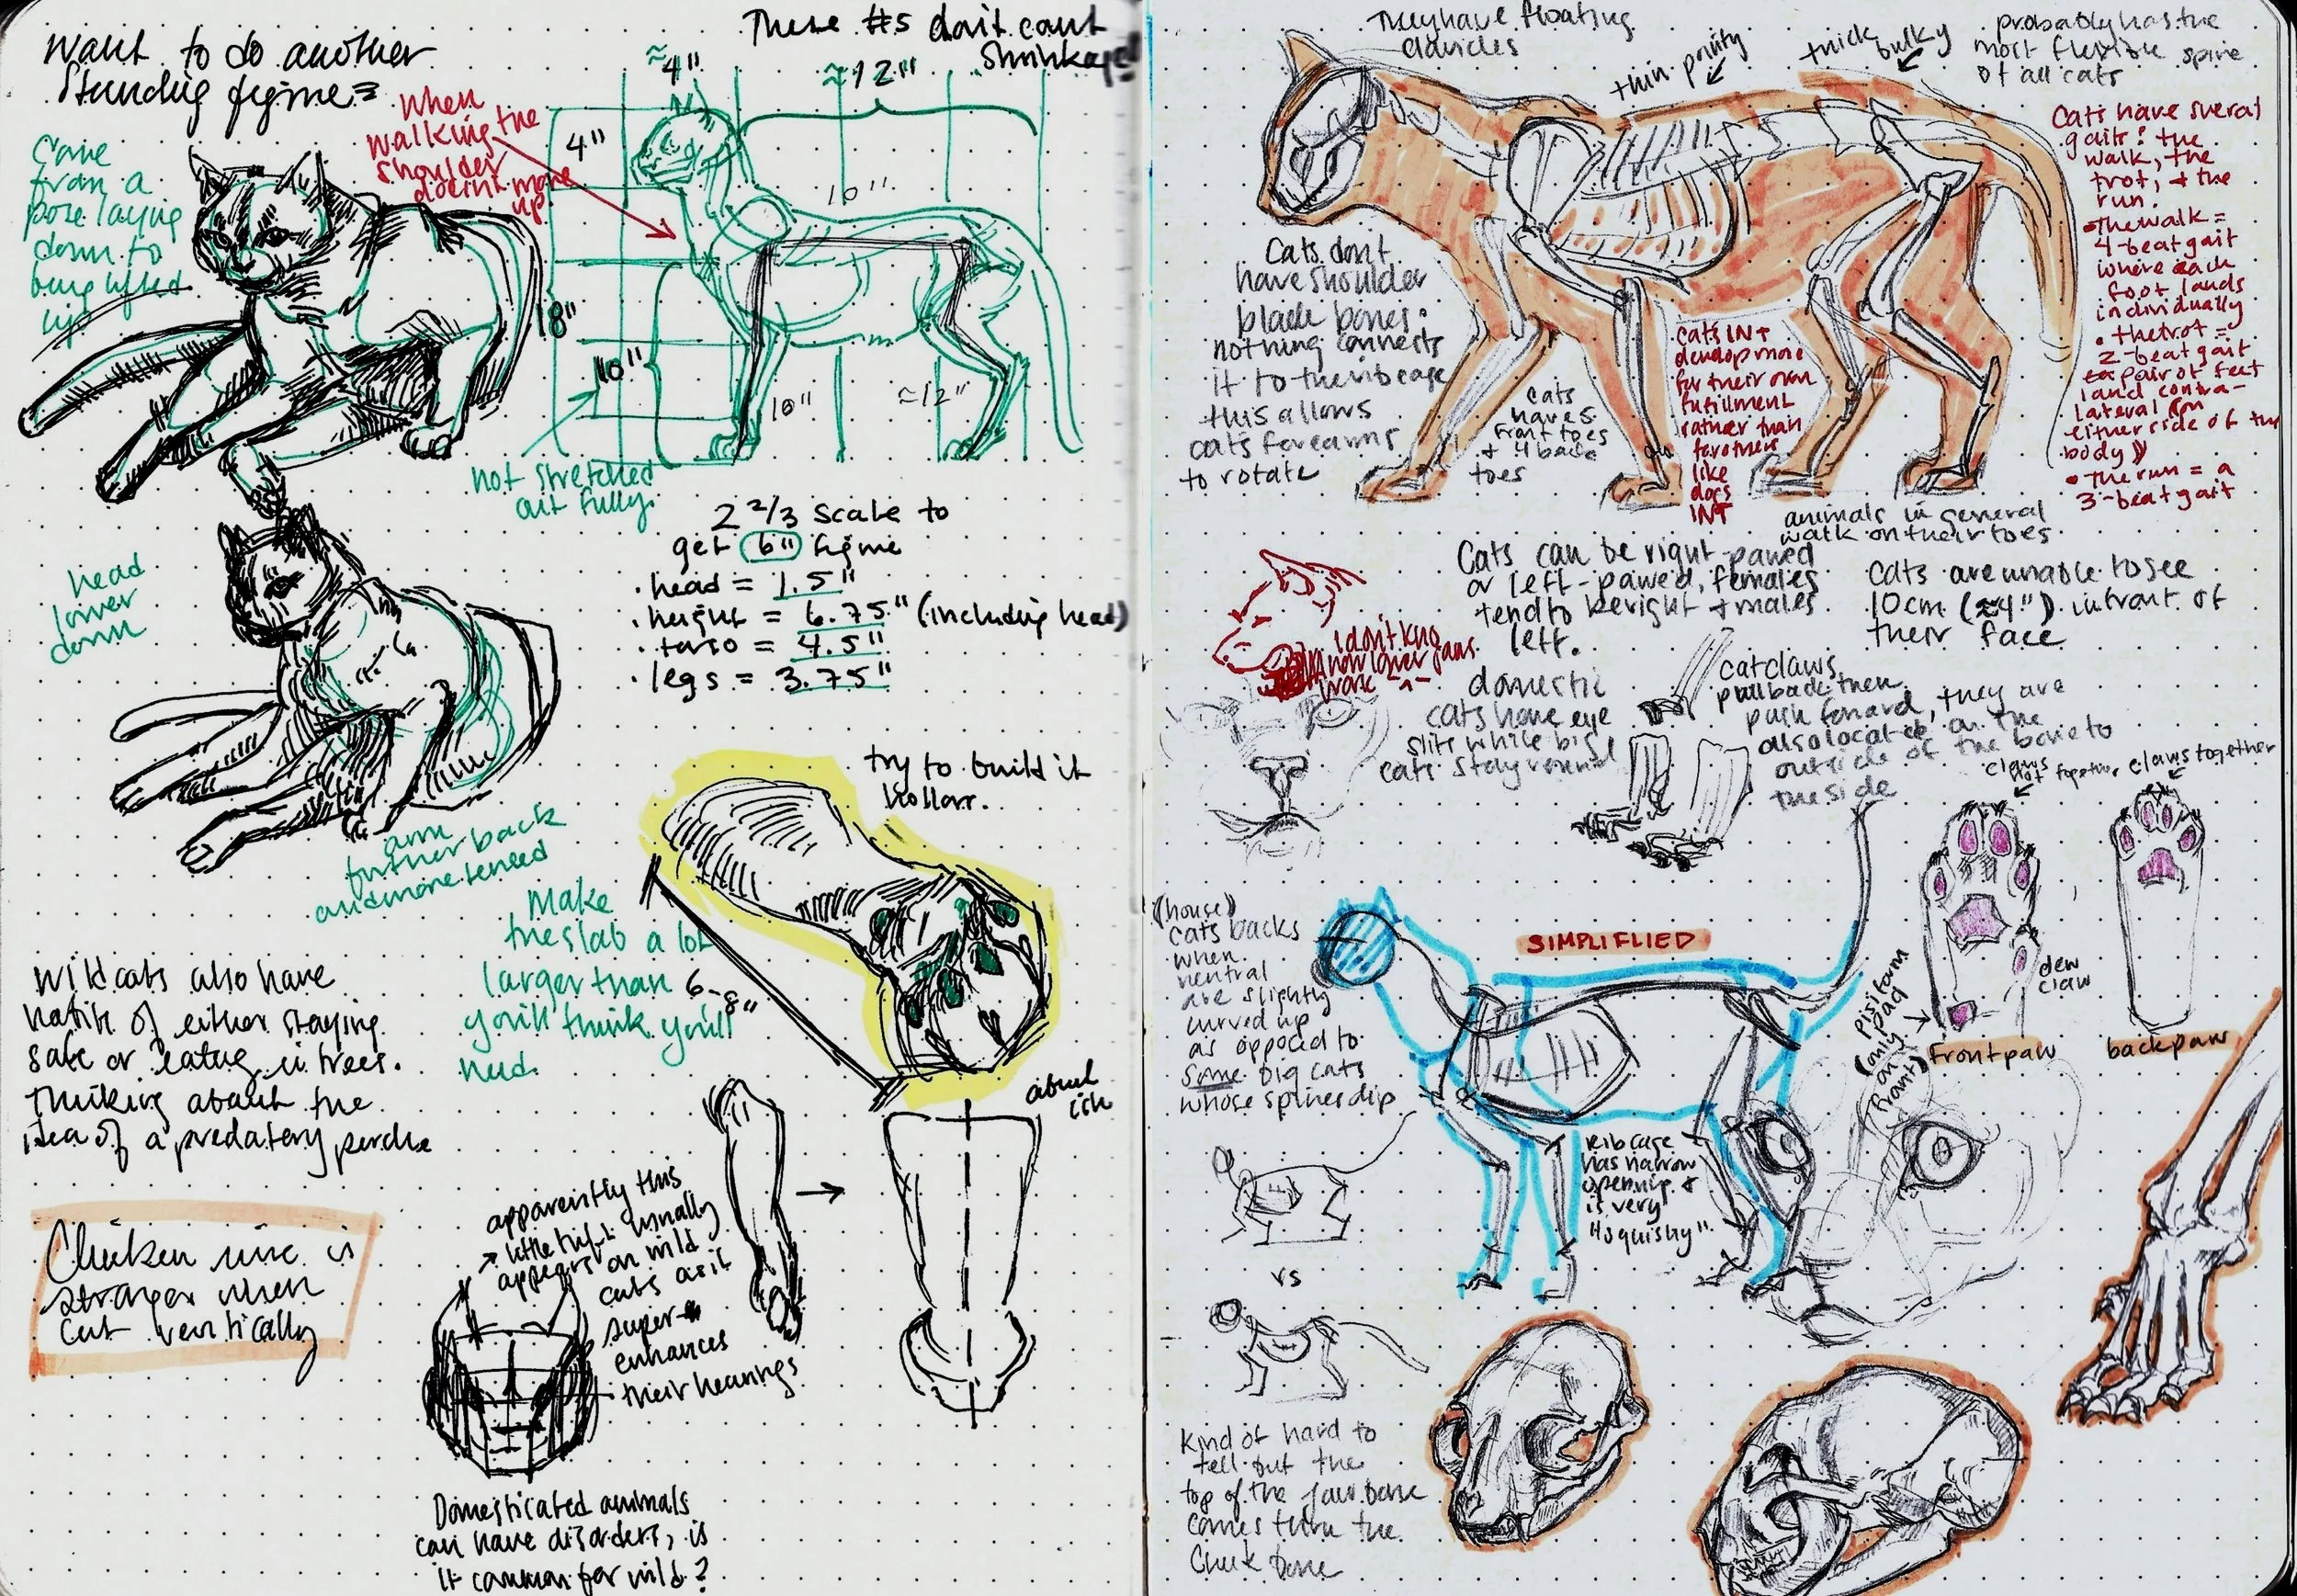 Want to do another
standing figure =
These #s don't count
shrinkage
≈4"
≈12"
4"
10"
18"
10"
10"
≈12"
Came
from a
pose laying
down to
being lifted
up
When
walking the
shoulder
doesn't move
up
not stretched
out fully
2 2/3 scale to
get 6" figure
• head = 1.5"
• height = 6.75" (including head)
• torso = 4.5"
• legs = 3.75"
head
lower
down
arm
further back
and more tensed
try to build it
hollow.
Make
the slab a lot
larger than
you'll think you'll
need
6-8"
about
Wild cats also have
habit of either staying
safe or eating in trees.
Thinking about the
idea of a predatory perch
Chicken wire is
stronger when
cut vertically
apparently this
little tuft usually
appears on wild
cats as it
super
enhances
their hearings
Domesticated animals
can have disorders, is
it common for wild?
They have floating
clavicles
thin pointy
thick bulky
probably has the
most flexible spine
of all cats
Cats have sveral
gaits: the
walk, the
trot, + the
run.
• The walk =
4-beat gait
where each
foot lands
individually
• the trot =
2-beat gait
pair of feet
land contra-
lateral (on
either side of the
body)
• The run = a
3-beat gait
Cats don't
have shoulder
blade bones.
nothing connects
it to the ribcage
this allows
cats forearms
to rotate
Cats
have 5
front toes
+ 4 back
toes
Cats INT
develop more
for their own
fufillment
rather than
for others
like
dogs
INT
animals in general
walk on their toes
Cats can be right-pawed
or left-pawed, females
tend to be right + males
left.
Cats are unable to see
10cm (≈4") infront of
their face
I don't kno
how lower jaws
work ^-^
domestic
cats have eye
slits while big
cats stay round
cat claws
pull back then
push forward, they are
also located on the
outside of the bone to
the side
claws
not together
claws together
dew
claw
pisiform
pad
(only
on
front)
front paw
back paw
(house)
cats backs
when
nentral
are slightly
curved up
as opposed to
some big cats
whose spines dip
SIMPLIFLIED
Rib cage
has narrow
opening +
is very
"squishy"
vs
Kind of hard to
tell but the
top of the jaw bone
comes thru the
Cheek bone